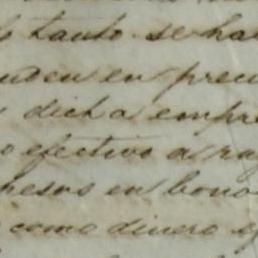 tanto se ha
en preci
dicha empre
efectivo a ra
pesos en bono
como dinero e